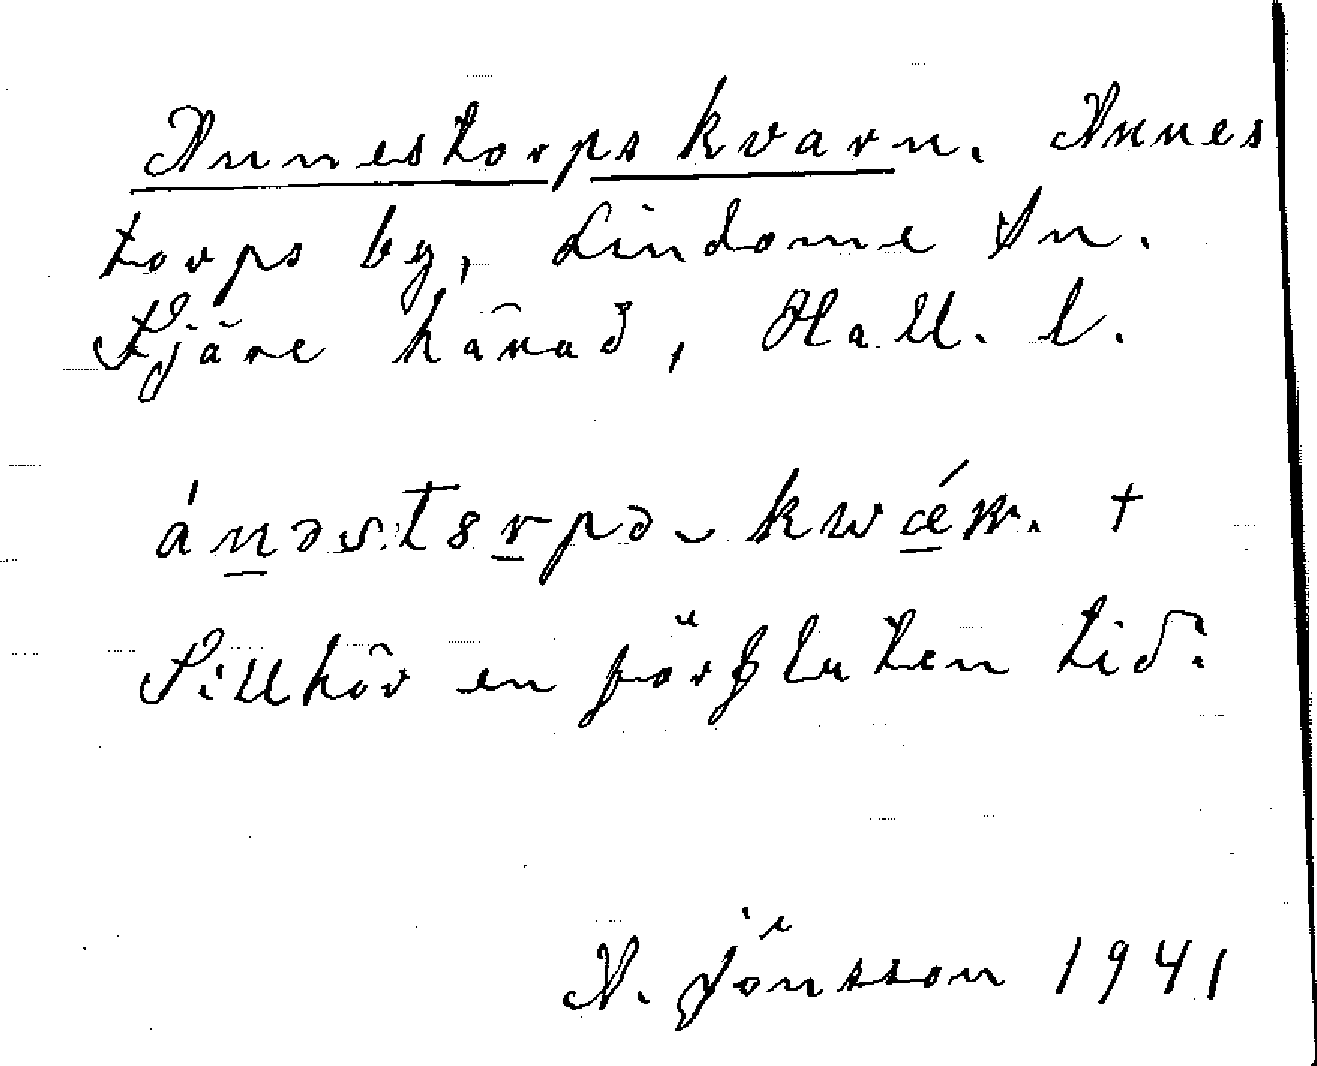 Annestorps kvarn. Annes
torps by, Lindome Sn.
Fjäre härad, Hall. l.
ánəstərpə‿kwǽrn. +
Tillhör en förfluten tid.
A. Jönsson 1941